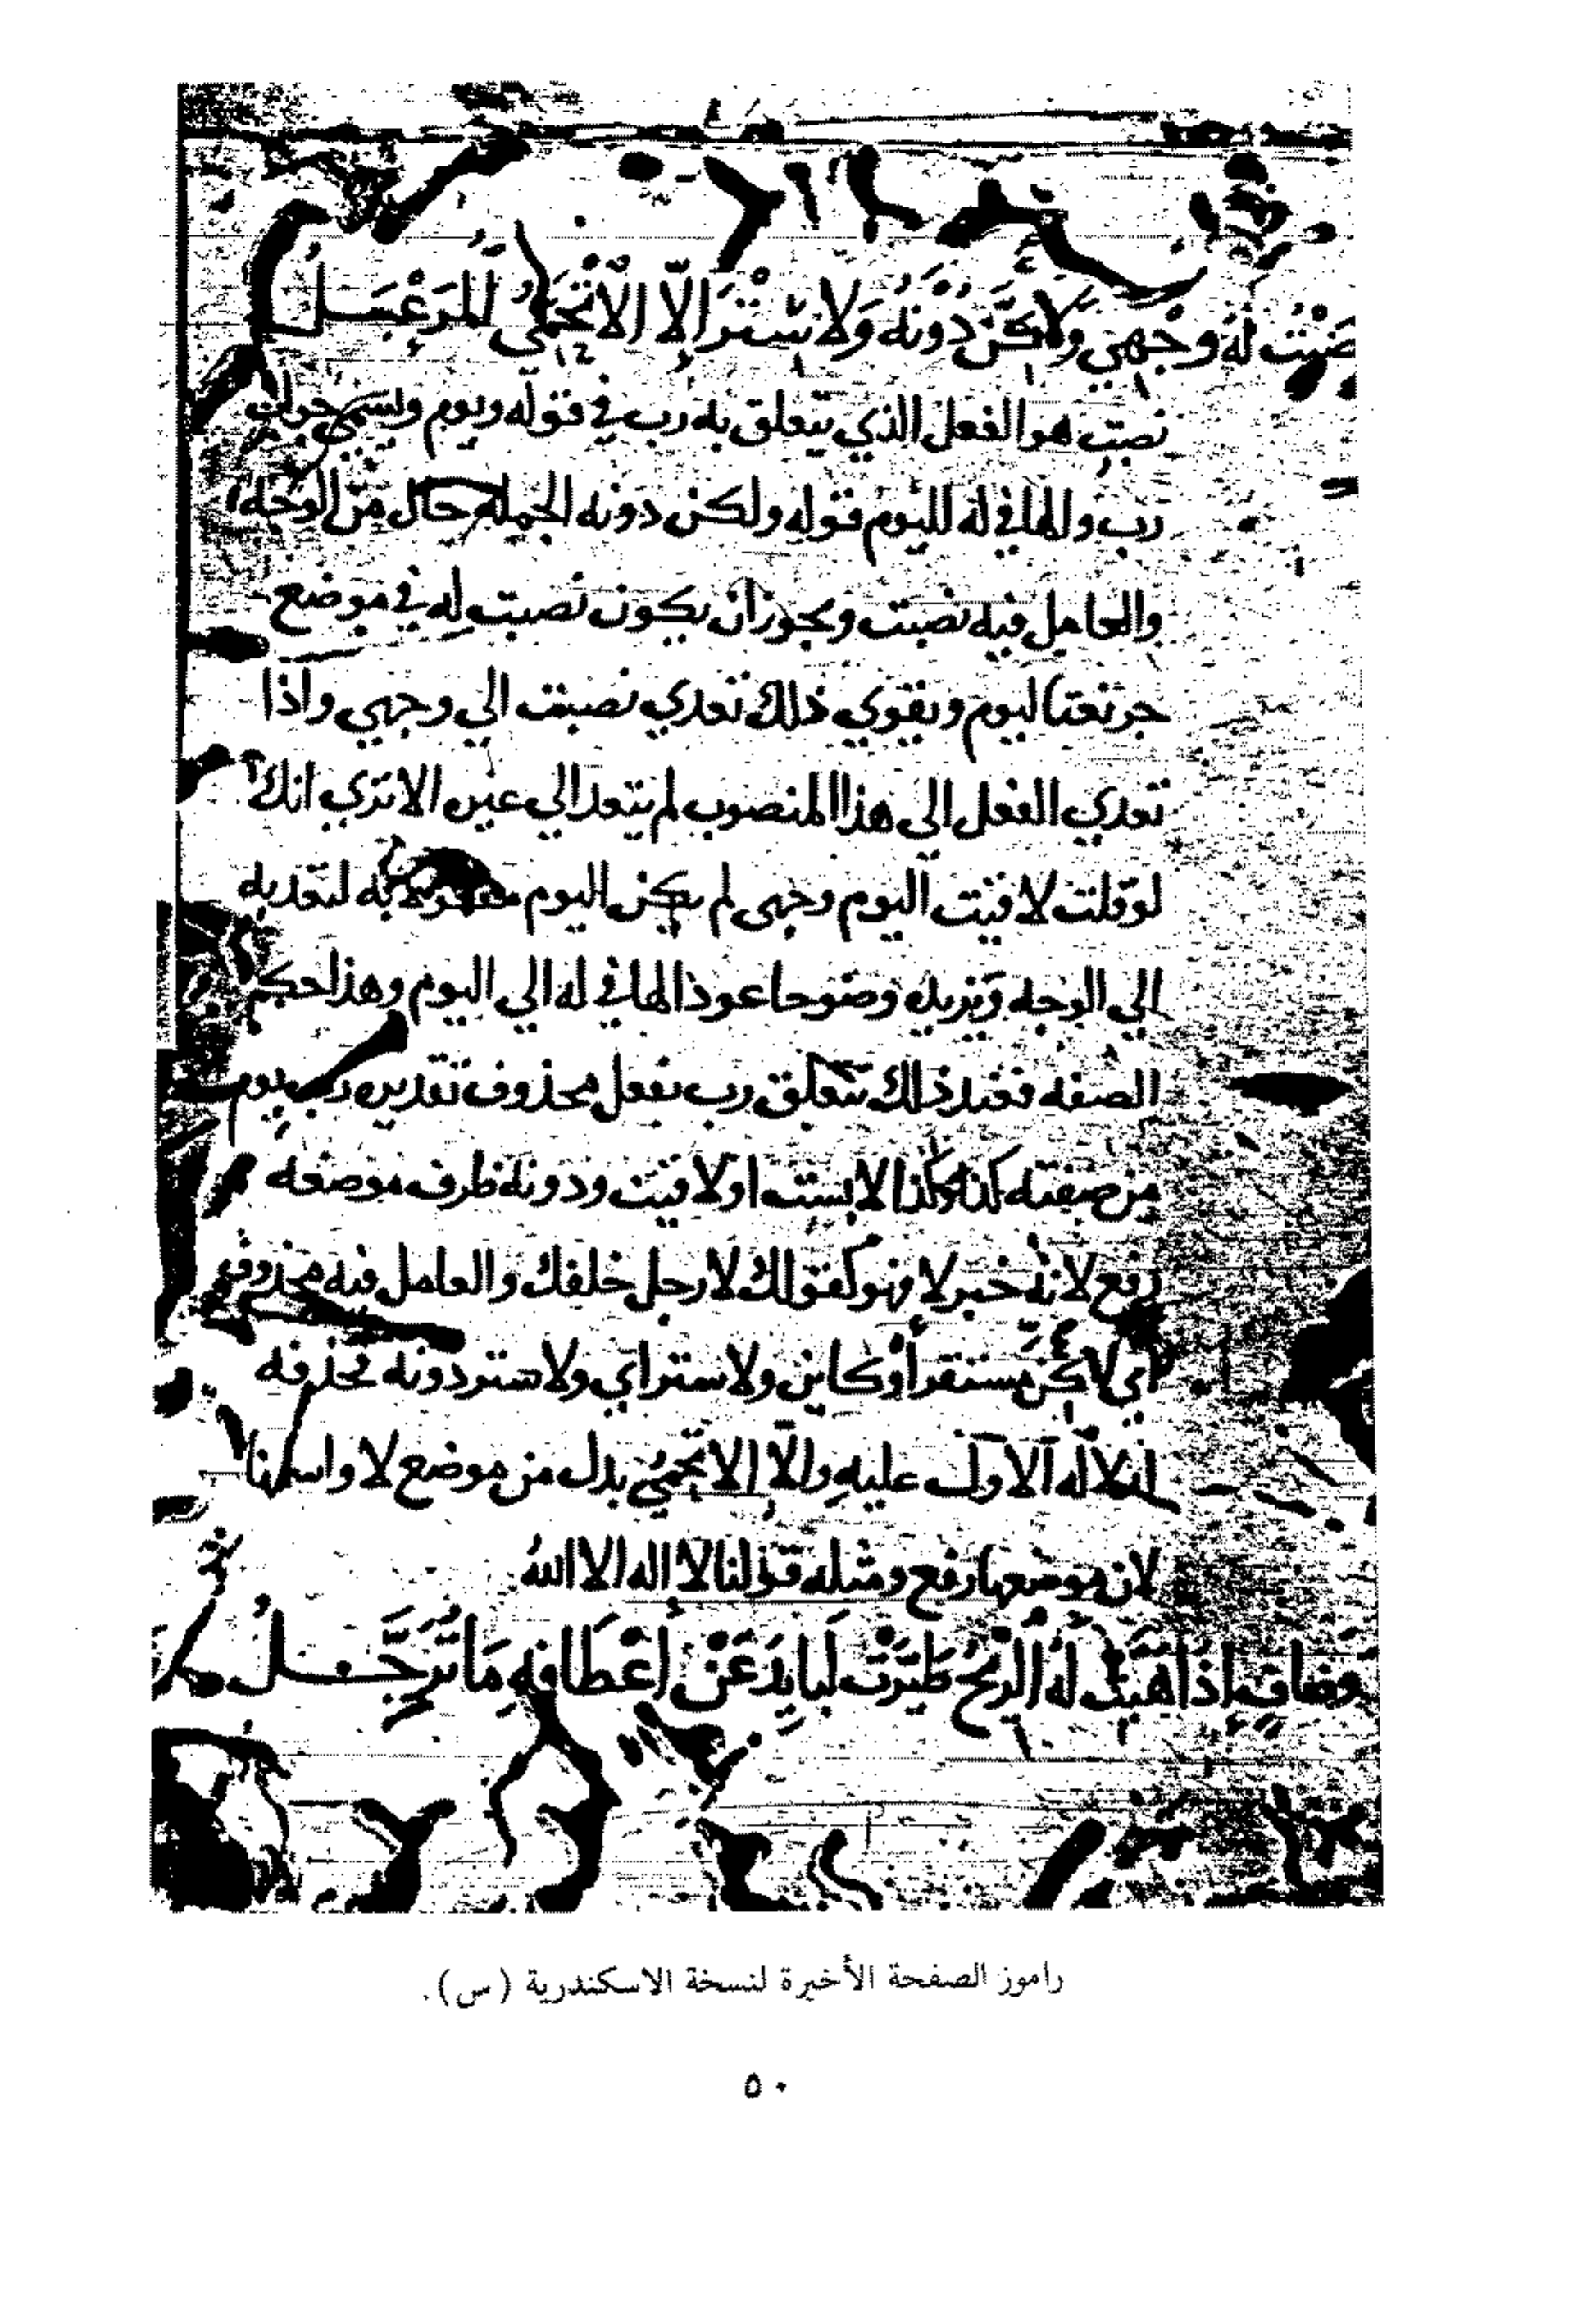 نَصَبْتُ لَهُ وَجْهِي وَلَا كِنَّ دُونَهُ وَلَا سِتْرَ اِلَّا الْاَتْحَمِيُّ الْمُرَعْبَلُ
نصبت هو الفعل الذي يتعلق به رب في قوله ويوم ويسمى جواب
رب والها في له لليوم قوله ولكن دونه الجمله حال من الوجه
والعامل فيه نصبت ويجوز ان يكون نصبت له في موضع
جر نعتا ليوم ويقوي ذلك تعدي نصبت الي وجهي واذا
تعدي الفعل الى هذا المنصوب لم يتعد الي غيره الا تري انك
لو قلت لاقيت اليوم وجهى لم يكن اليوم مفعولا به لتعديه
الي الوجه ويزيده وضوحا عود الها في له الي اليوم وهذا حكم
الصفه فعند ذلك يتعلق رب بفعل محذوف تقديره رب يوم
من صفته كذا وكذا لابست او لاقيت ودونه ظرف موضعه
رفع لانه خبر لا فهو كقولك لا رجل خلفك والعامل فيه محذوف
اي لا كِنَّ مستقر أو كاين ولا ستر اي ولا ستر دونه فحذفه
لدلاله الاول عليه والّا الاتحميُّ بدل من موضع لا واسمها
لان موضعها رفع ومثله قولنا لا اله الا اللهُ
وَضَافٍ اِذَا هَبَّتْ لَهُ الرِّيحُ طَيَّرَتْ لَبَايِدَ عَنْ اَعْطَافِهِ مَا تُرَجَّلُ
راموز الصفحة الأخيرة لنسخة الاسكندرية (س).
٥٠